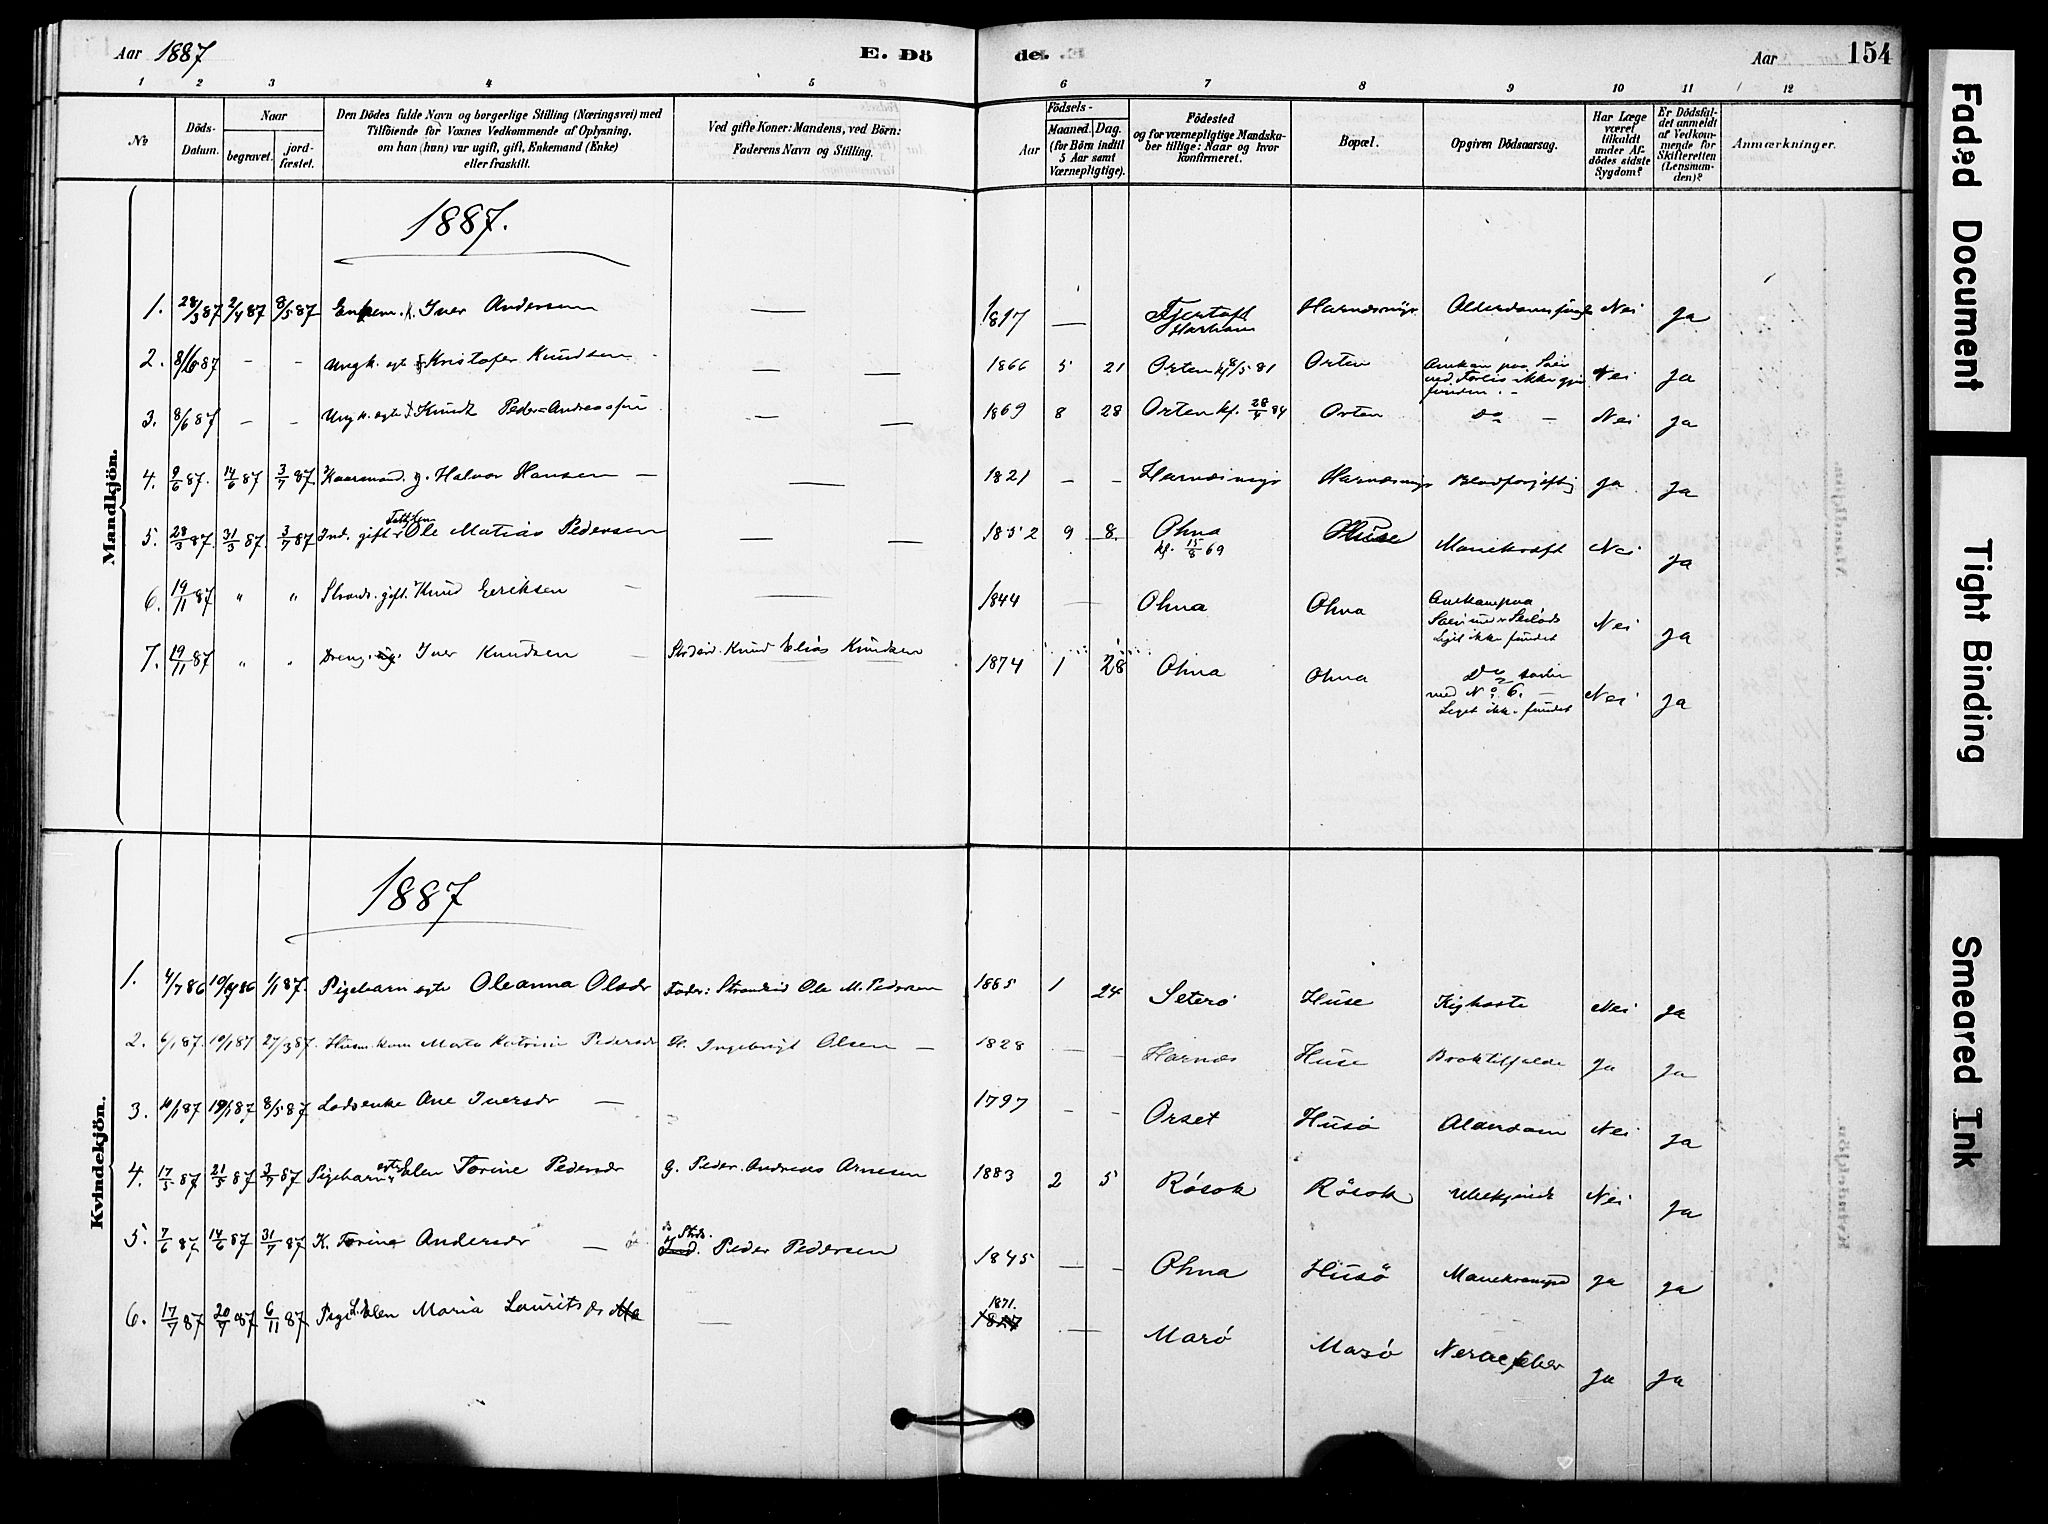 Aar 1887 E. Dö de. Aar 154
1 2 3 4 5 6 7 8 9 10 11 12
No Döds-Datum. Naar begravet. jord-fæstet. Den Dödes fulde Navn og borgerlige Stilling (Næringsvei) med Tilföiende for Voxnes Vedkommende af Oplysning, om han (hun) var ugift, gift, Enkemand (Enke) eller fraskilt. Ved gifte Koner: Mandens, ved Börn: Faderens Navn og Stilling. Födsels- Aar Maaned. Dag. (for Börn indtil 5 Aar samt Værnepligtige). Födested og for værnepligtige Mandskaber tillige: Naar og hvor konfirmeret. Bopæl. Opgiven Dödsaarsag. Har Læge været tilkaldt under Afdödes sidste Sygdom? Er Dödsfaldet anmeldt af Vedkommende for Skifteretten (Lensmanden)? Anmærkninger.
Mandkjön.
1887.
1. 28/3 87 2/4 87 8/5 87 Enkem. Iver Andersen — 1817 — Fjertoft Harham Alderdom Nei Ja
2. 8/6 87 - - Ungk. egte Kristofer Knudsen — — 1866 5 21 Orten kf 8/5 81 Orten Omkom paa Søen ved Forlis ikke gjenfunden. - Nei Ja
3. 8/6 87 - - Ungk. egte Knut Peder-Andreassen — — 1869 8 28 Orten kf. 28/4 84 Orten Do — Nei Ja
4. 9/6 87. 14/6 87 3/7 87 Kaarmand. g. Halvor Hansen — — 1821 - - Harnæsmyr Harnæsmyr Blodforgiftig Ja Ja
5. 28/3 87. 31/3 87. 3/7 87 Ind. gift Ole Matias Pedersen — 1852 9 8. Ohna kf. 15/8 69 Huse Nei Ja
6. 19/11 87 " " Strands. gift. Knud Eeriksen — — 1844 — Ohna Ohna Omkom paa Søen Liget ikke fundet Nei Ja
7. 19/11 87 " " Dreng. Iver Knudsen — Knud Elias Knudsen 1874 1 28 Ohna Ohna Do med No 6. — Liget ikke fundet Nei Ja
Kvindekjön.
1887
1. 4/7 86 86 1/1 87. Pigebarn egte Oleanna Olsdr Fader: Strandsid Ole M. Pedersen 1885 1 24 Seterø Huse Kighoste Nei Ja
2. 6/1 87. 19/1 87 27/3 87. Husm. kone Marta Katrine Pedersdr Ingebrigt Olsen — 1828 - - Harnæs Huse Broktilfælde Ja Ja
3. 11/1 87 19/1 87 8/5 87 Ladsenke Ane Iversdr — 1797 - - Orset Husø Alderdom Nei Ja
4. 17/5 87 21/5 87 3/7 87 Pigebarn egte Elen Torine Pedersdr G. Peder. Andreas Arnesen 1883 2 5 Røsok Røsok Nei Ja
5. 7/6 87 14/6 87 31/7 87 K. Torine Andersdr — Strds. Peder Pedersen 1845 — - Ohna Husø Mavekrampe Ja Ja
6. 17/7 87 20/7 87 6/11 87 Pige Elen Maria Lauritsdr — 1871. — Marø Marø Nervefeber Ja Ja
Faded Document
Tight Binding
Smeared Ink